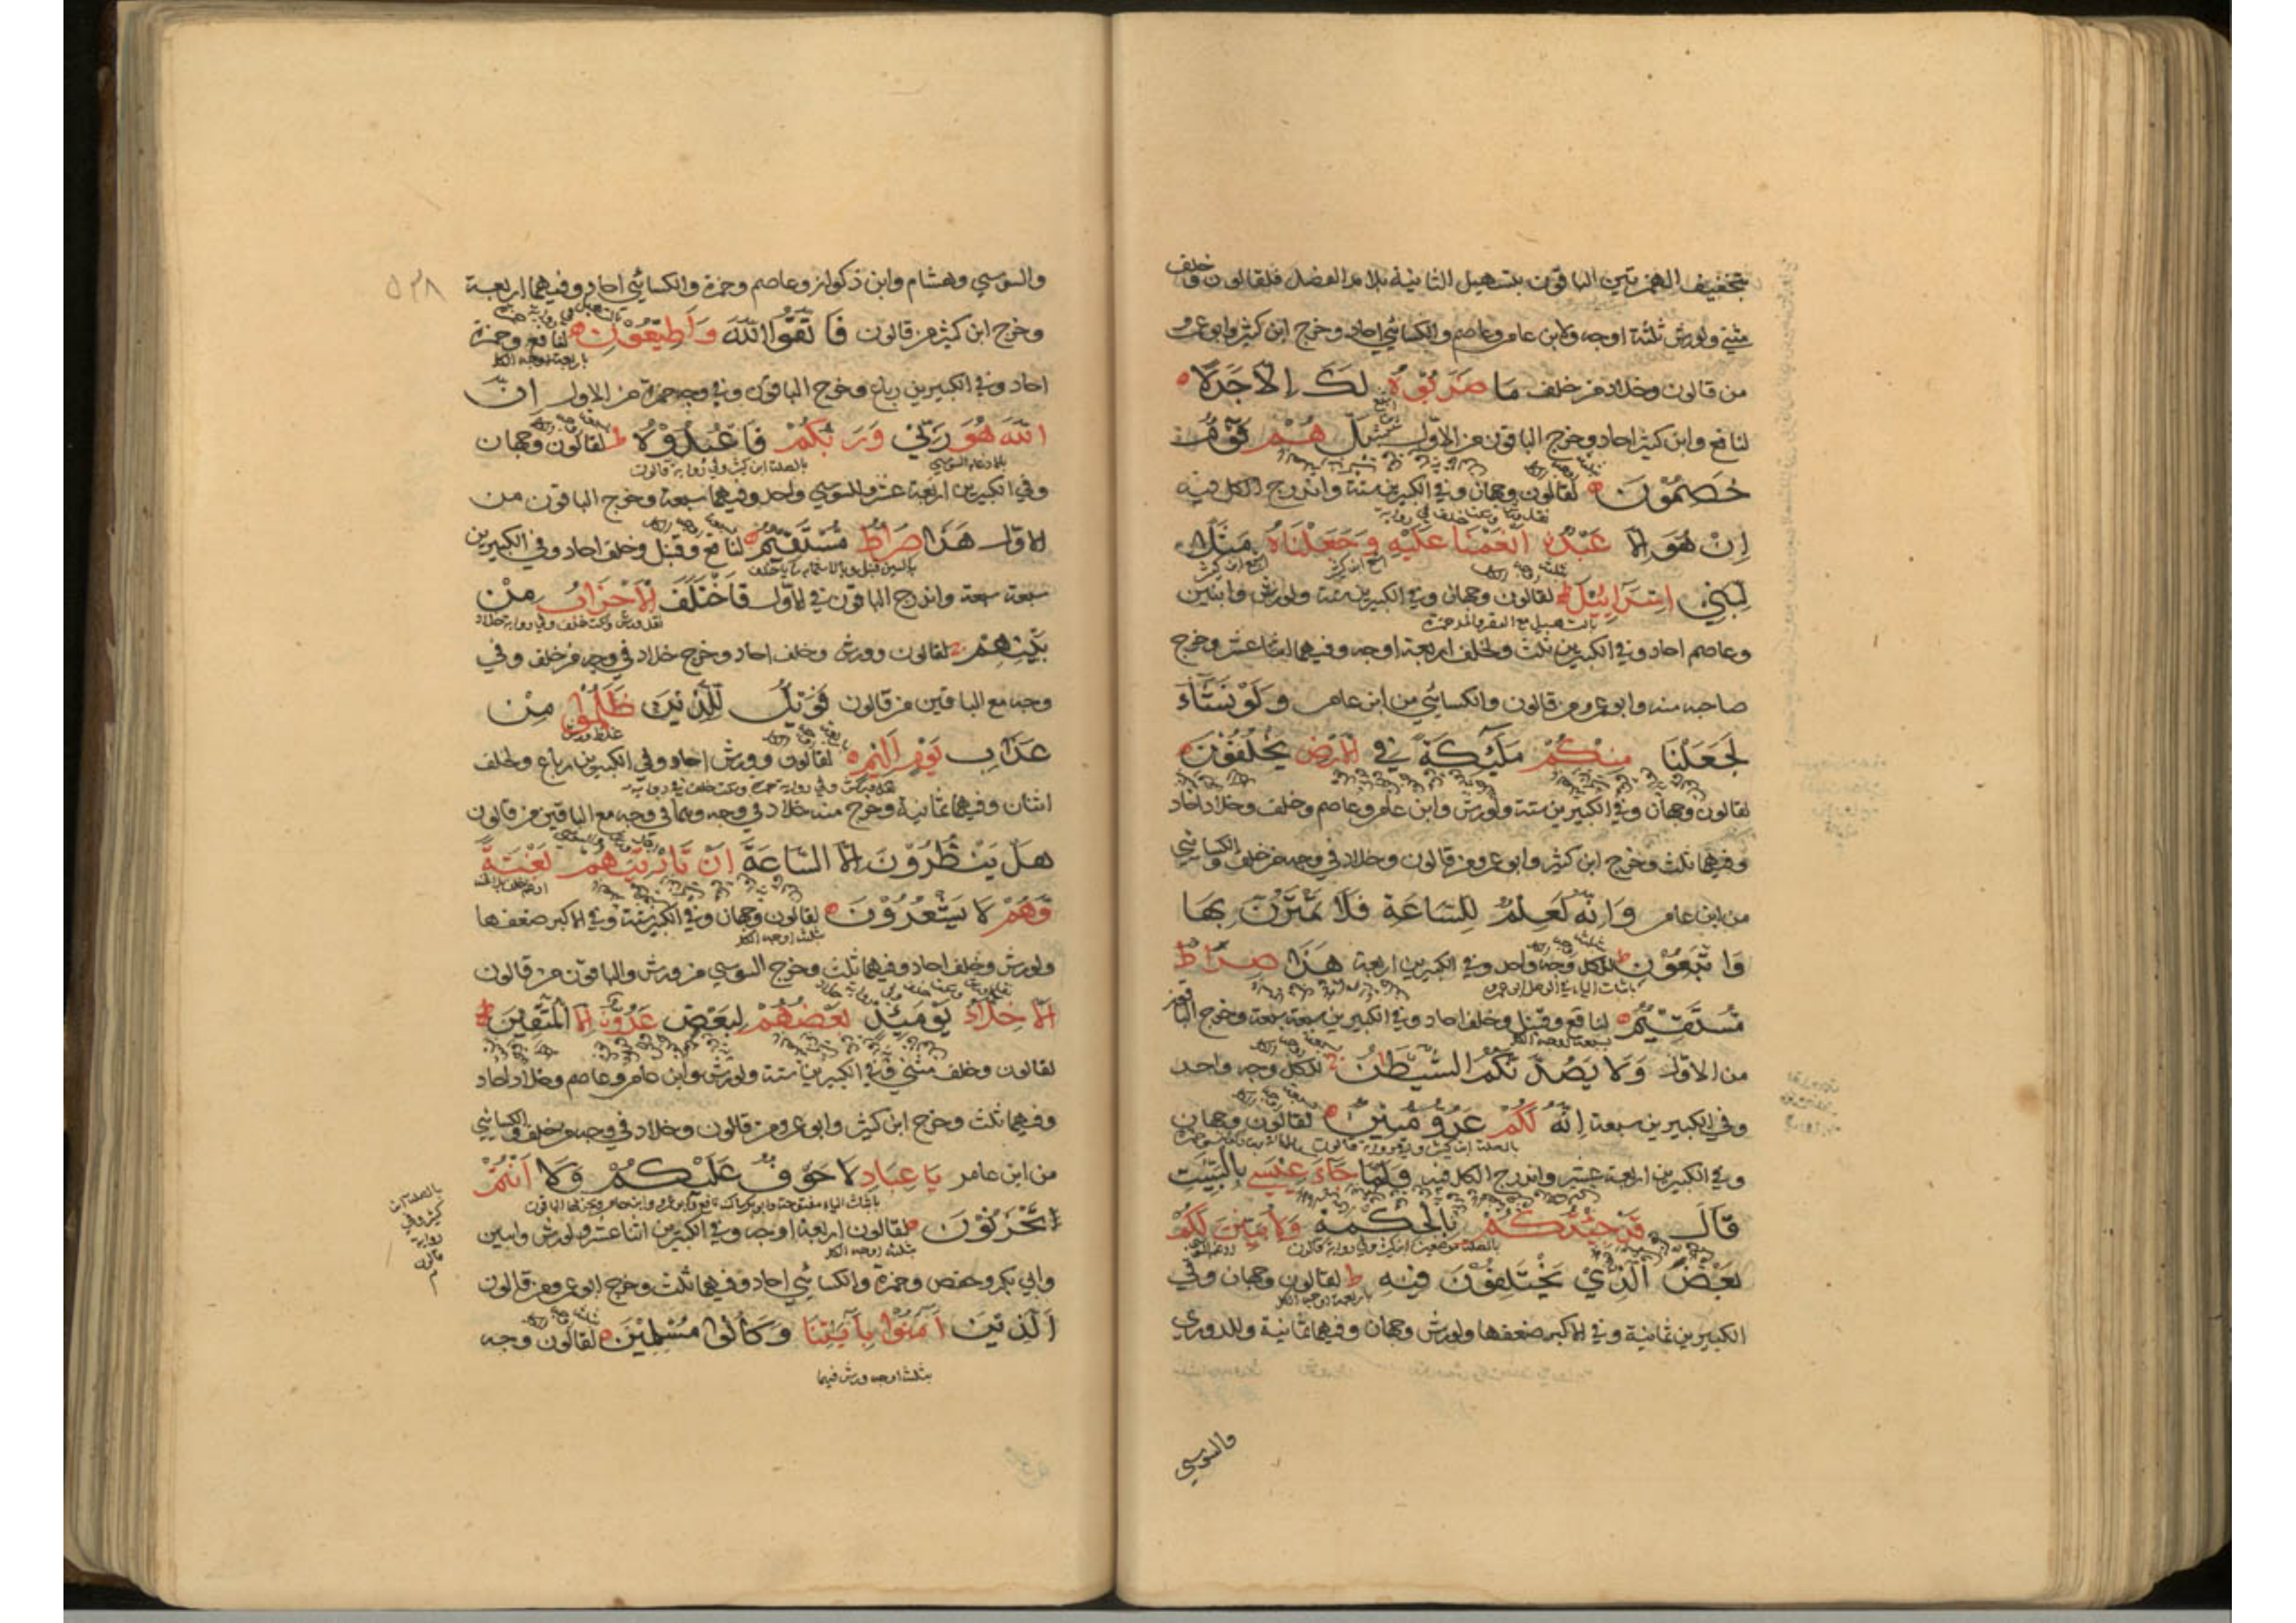 بتخفيف الهمزتين الباقون بتسهيل الثانية بلا مد الفصل فلقالون وخلف
مثنى ولورش ثلثة اوجه ولابن عامر وعاصم والكسائي احاد وخرج ابن كثير وابو عمرو
من قالون وخلاد من خلف مَا ضَرَبُوهُ لَكَ اِلَّا جَدَلًا
لنافع وابن كثير احاد وخرج الباقون من الاول بَلْ هُمْ قَوْمٌ
خَصِمُوْنَ لقالون وجهان وفي الكبيرين ستة واندرج الكل فيه
اِنْ هُوَ اِلَّا عَبْدٌ اَنْعَمْنَا عَلَيْهِ وَجَعَلْنَاهُ مَثَلًا
لِبَنِي اِسْرَائِيْلَ لقالون وجهان وفي الكبيرين ستة ولورش وابنين
بالتسهيل مع القصر والمد حمزة
وعاصم احاد وفي الكبيرين ثلث ولخلف اربعة اوجه وفيهما اثنا عشر وخرج
صاحبه منه وابو عمرو من قالون والكسائي من ابن عامر وَلَوْ نَشَآءُ
لَجَعَلْنَا مِنْكُمْ مَلٰئِكَةً فِي الْاَرْضِ يَخْلُفُوْنَ
لقالون وجهان وفي الكبيرين ستة ولورش وابن عامر وعاصم وخلف وخلاد احاد
وفيهما ثلث وخرج ابن كثير وابو عمرو من قالون وخلاد في وجه من خلف والكسائي
من ابن عامر وَاِنَّهُ لَعِلْمٌ لِلسَّاعَةِ فَلَا تَمْتَرُنَّ بِهَا
وَاتَّبِعُوْنِ للكل وجه واحد وفي الكبيرين اربعة هٰذَا صِرَاطٌ
مُسْتَقِيْمٌ لنافع وقنبل وخلف احاد وفي الكبيرين سبعة سبعة وخرج الباقون
من الاول وَلَا يَصُدَّنَّكُمُ الشَّيْطٰنُ للكل وجه واحد
وفي الكبيرين سبعة اِنَّهُ لَكُمْ عَدُوٌّ مُبِيْنٌ لقالون وجهان
وفي الكبيرين اربعة عشر واندرج الكل فيه وَلَمَّا جَآءَ عِيْسٰى بِالْبَيِّنٰتِ
قَالَ قَدْ جِئْتُكُمْ بِالْحِكْمَةِ وَلِاُبَيِّنَ لَكُمْ
بَعْضَ الَّذِيْ تَخْتَلِفُوْنَ فِيْهِ ط لقالون وجهان وفي
باربعة اوجه الكل
الكبيرين ثمانية وفي الاكبر ضعفها ولورش وجهان وفيهما ثمانية وللدوري
والسوسي
والسوسي وهشام وابن ذكوان وعاصم وحمزة والكسائي احاد وفيهما اربعة
٥٣٨
وخرج ابن كثير من قالون فَاتَّقُوا اللّٰهَ وَاَطِيْعُوْنِ لنافع وحمزة
باربعة اوجه الكل
احاد وفي الكبيرين رباع وخرج الباقون وفي وجه حمزة من الاول اِنَّ
اللّٰهَ هُوَ رَبِّيْ وَرَبُّكُمْ فَاعْبُدُوْهُ ط لقالون وجهان
بالصلة ابن كثير وفي رواية قالون
وفي الكبيرين اربعة عشر وللسوسي واحد وفيهما سبعة وخرج الباقون من
الاول هٰذَا صِرَاطٌ مُسْتَقِيْمٌ لنافع وقنبل وخلف احاد وفي الكبيرين
سبعة سبعة واندرج الباقون في الاول فَاخْتَلَفَ الْاَحْزَابُ مِنْ
بَيْنِهِمْ لقالون وورش وخلف احاد وخرج خلاد في وجه من خلف وفي
وجه مع الباقين من قالون فَوَيْلٌ لِلَّذِيْنَ ظَلَمُوْا مِنْ
عَذَابِ يَوْمٍ اَلِيْمٍ لقالون وورش احاد وفي الكبيرين رباع ولخلف
اثنان وفيهما ثمانية وخرج منه خلاد في وجه وهما في وجه مع الباقين من قالون
هَلْ يَنْظُرُوْنَ اِلَّا السَّاعَةَ اَنْ تَاْتِيَهُمْ بَغْتَةً
وَّهُمْ لَا يَشْعُرُوْنَ لقالون وجهان وفي الكبير ستة وفي الاكبر ضعفها
ثلثة اوجه الكل
ولورش وخلف احاد وفيهما ثلث وخرج السوسي من ورش والباقون من قالون
اَلْاَخِلَّآءُ يَوْمَئِذٍ بَعْضُهُمْ لِبَعْضٍ عَدُوٌّ اِلَّا الْمُتَّقِيْنَ
لقالون وخلف مثنى وفي الكبيرين ستة ولورش وابن عامر وعاصم وخلاد احاد
وفيهما ثلث وخرج ابن كثير وابو عمرو من قالون وخلاد في وجه من خلف والكسائي
من ابن عامر يَا عِبَادِ لَا خَوْفٌ عَلَيْكُمْ وَلَا اَنْتُمْ
بالصلة ابن
كثير وفي
رواية
قالون
تَحْزَنُوْنَ لقالون اربعة اوجه وفي الكبيرين اثنا عشر ولورش وابنين
بثلثة اوجه الكل
وابي بكر وحفص وحمزة والكسائي احاد وفيهما ثلث وخرج ابو عمرو من قالون
اَلَّذِيْنَ اٰمَنُوْا بِاٰيٰتِنَا وَكَانُوْا مُسْلِمِيْنَ لقالون وجه
بثلثة اوجه ورش فيهما